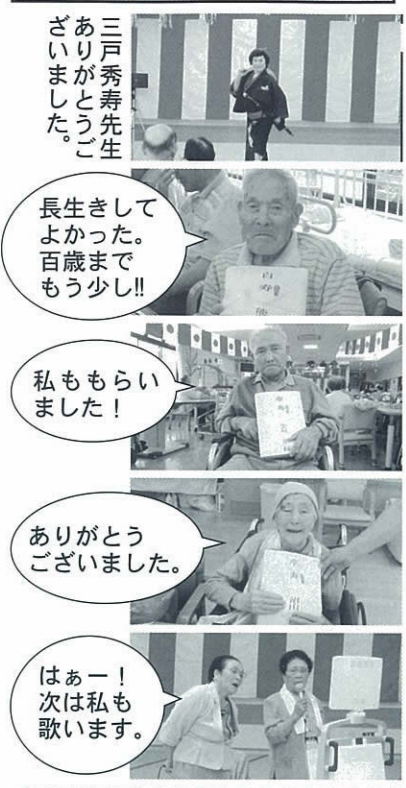 三戸秀寿先生
ありがとうご
ざいました。
長生きして
よかった。
百歳まで
もう少し!!
私ももらい
ました！
ありがとう
ございました。
はぁー！
次は私も
歌います。